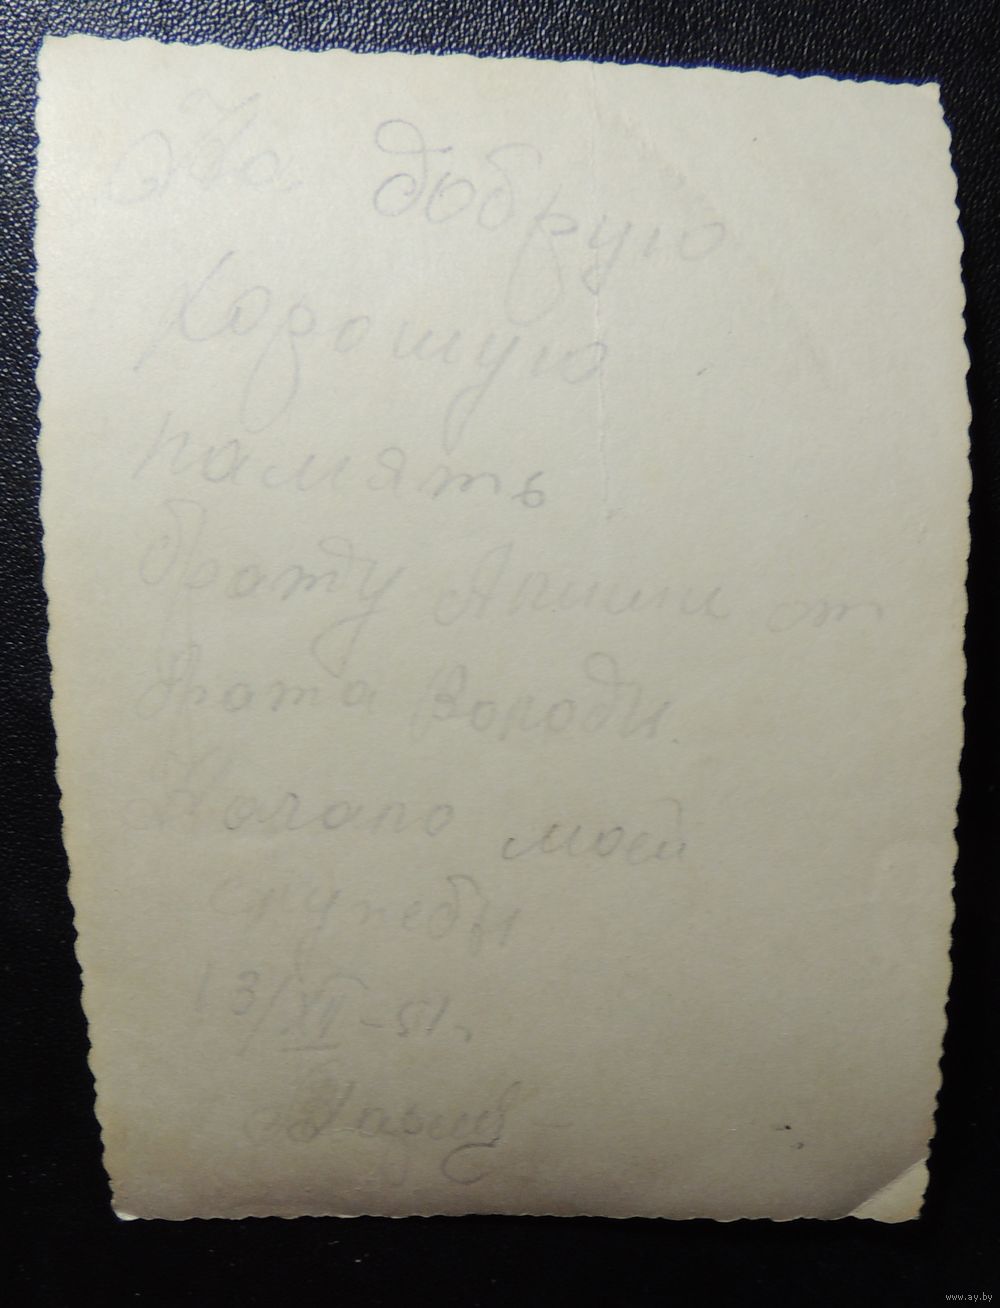 На добрую
хорошую
память
брату от
брата Володи
Начало моей
службы
13/XII-51г.
www.ay.by